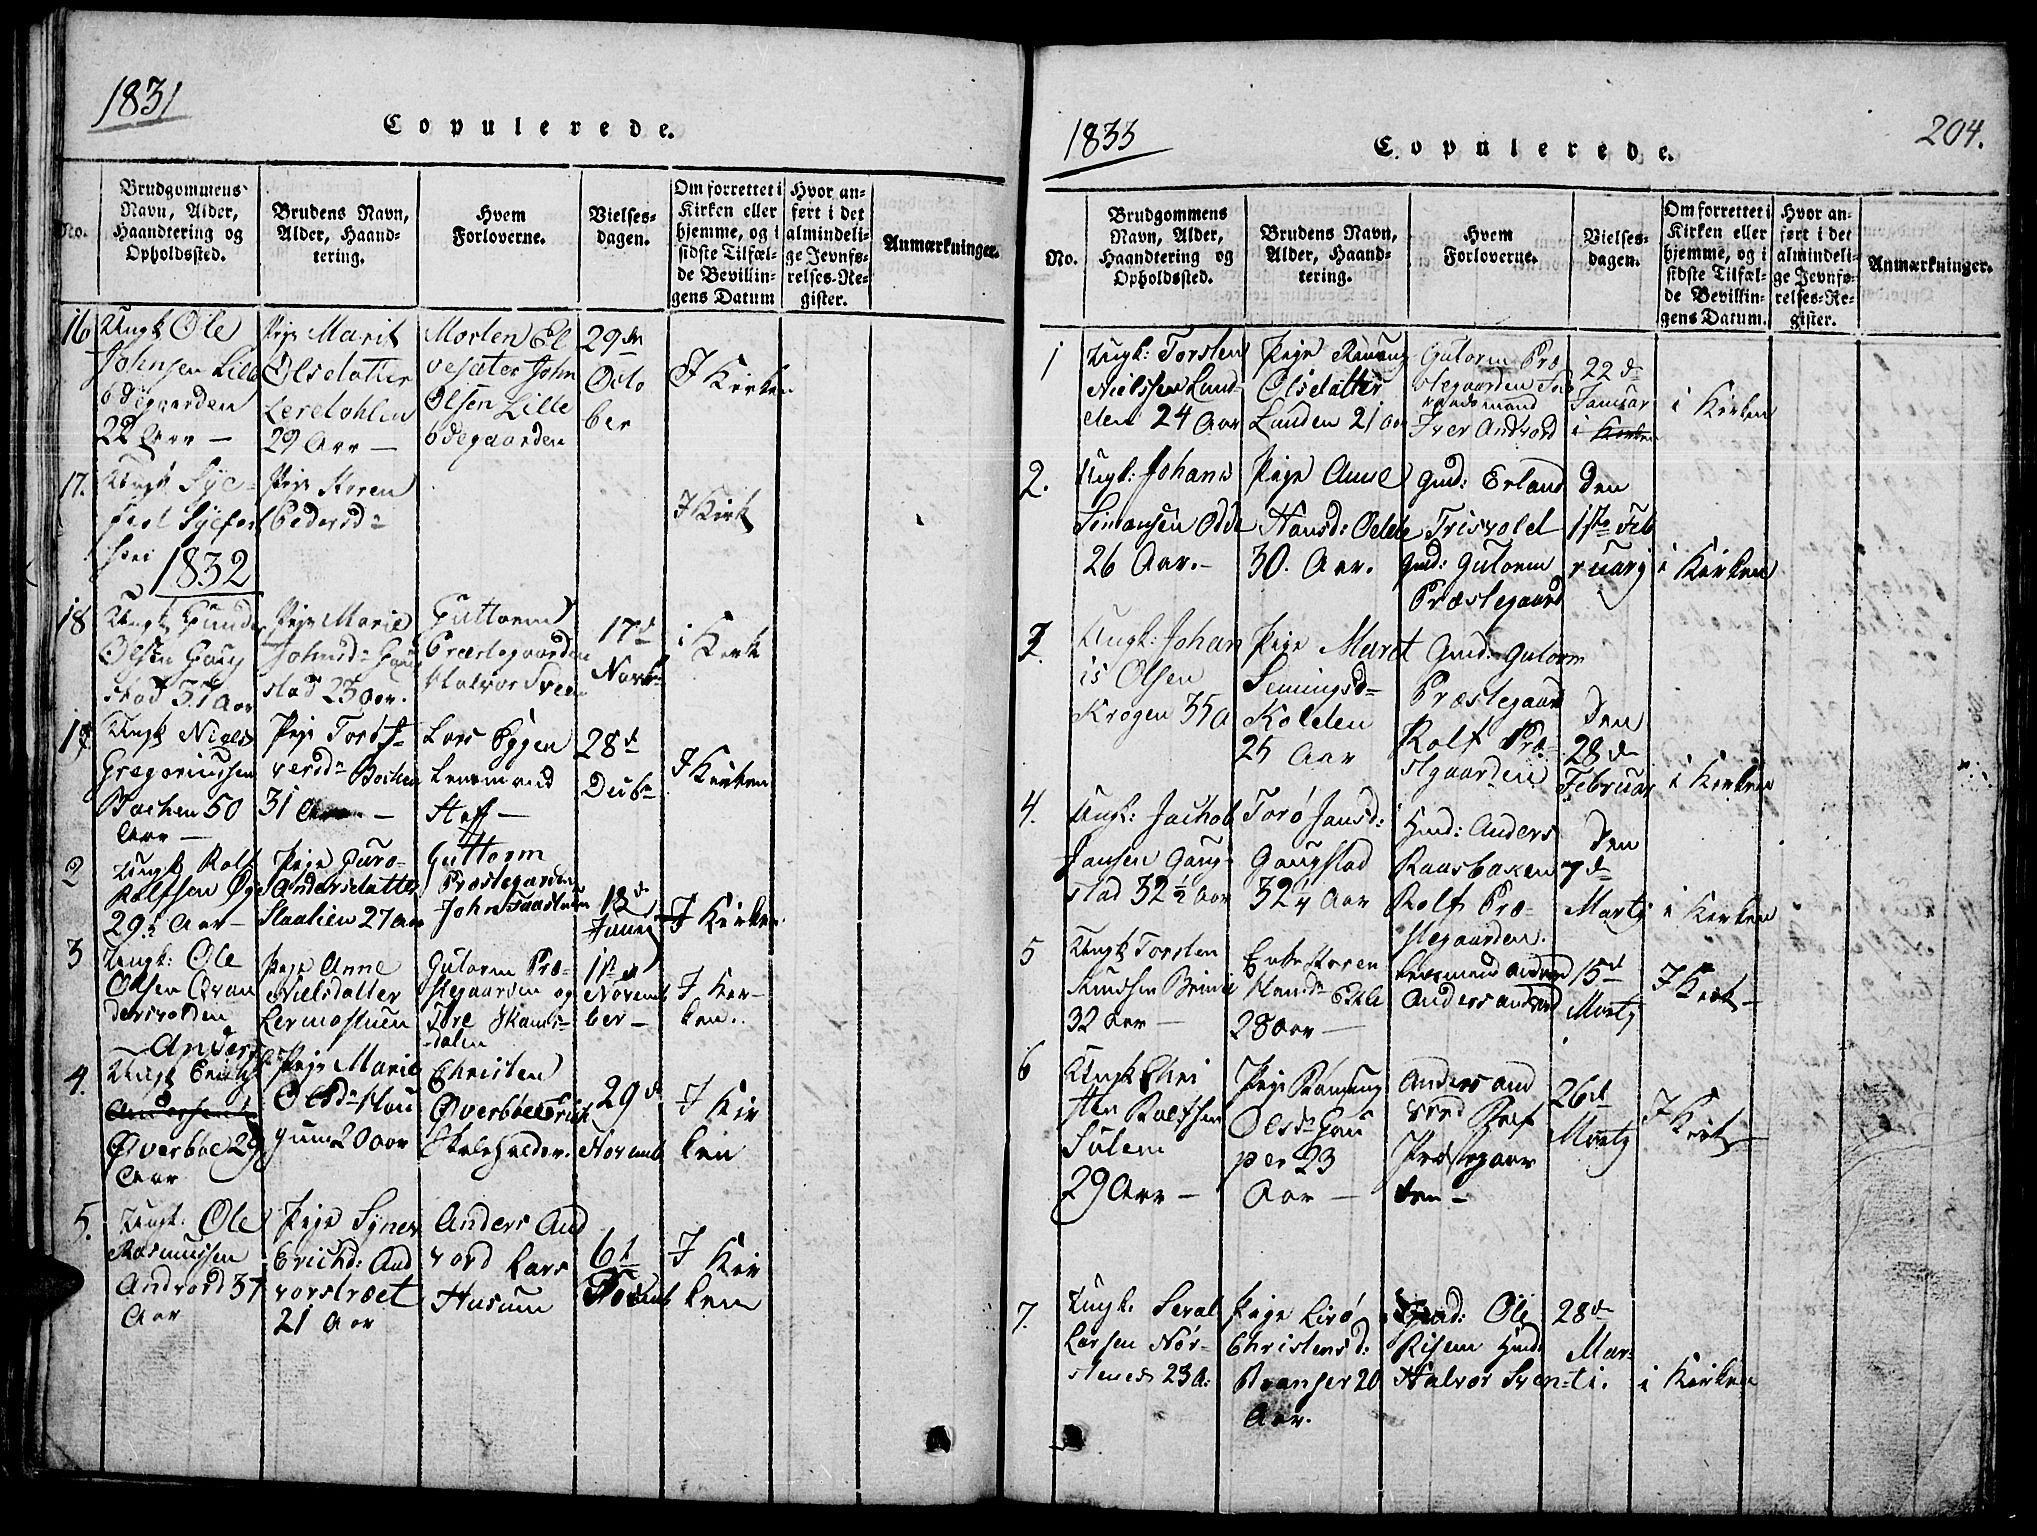 1831
Copulerede.
No.
Brudgommens
Navn, Alder,
Haandtering og
Opholdssted.
Brudens Navn,
Alder, Haand-
tering.
Hvem
Forloverne.
Vielses-
dagen.
Om forrettet i
Kirken eller
hjemme, og i
sidste Tilfæl-
de Bevillin-
gens Datum
Hvor an-
ført i det
almindeli-
ge Jevnfø-
relses-Re-
gister.
Anmærkninger.
16
Ungk Ole
Johnsen Lille
ødegaarden
22 Aar —
Pige Marit
Olsdatter
29 Aar —
Morten El
vesæter John
Olsen Lille
ødegaarden
29de
Octo
ber
I Kirken
17.
Ungk
Pige Karen
Pedersd
I Kirk
1832
18
Ungk
Olsen Gaug
stad 37 Aar
Pige Marie
Johnsd Gaug
stad 23 Aar.
Guttorm
Præstegaarden
Halvor Sveen
17d
Novb
i Kirk
19
Ungk Niels
Gregoriussen
Bachen 50
Aar —
Pige
Bachen
31 Aar —
Lars Eggen
Lensmand
Staff —
28d
I Kirken
2
Ungk Rolf
Rolfsen Øye
29½ Aar —
Pige Guro
Andersdatter
27 Aar
Guttorm
Præstegarden
John
18d
I Kirken
3
Ungk: Ole
Olsen Qvan
dersvolden
Pige Anne
Nielsdatter
Lermostuen
Gutorm Præ-
stegaarden og
Tore Skams-
dalen
11te
Novemb
ber —
I Kir-
ken.
Anders
4.
Ungk
Øverbøe 29
Aar
Pige Marie
Olsd
20 Aar
Christen
Øverbøe Erich
Skoleholder.
29d
Novemb
I Kir
ken
5.
Ungk: Ole
Rasmussen
Andvord 37
Aar
Pige Synev
Erichd: And
vorstræet
21 Aar
Anders And
vord Lars
Husum
6t
I Kir
ken
1833
Copulerede.
204.
No.
Brudgommens
Navn, Alder,
Haandtering og
Opholdssted.
Brudens Navn,
Alder, Haand-
tering.
Hvem
Forloverne.
Vielses-
dagen.
Om forrettet i
Kirken eller
hjemme, og i
sidste Tilfæl-
de Bevillin-
gens Datum.
Hvor an-
ført i det
almindeli-
ge Jevnfø-
relses-Re-
gister.
Anmærkninger.
1
Ungk: Torsten
Nielssen Lund-
en 24 Aar
Pige Rønnug
Olsdatter
Lunden 21 Aar
Gutorm Præ
stegaarden
Iver Andvord
22d
Januar
i Kirken
i Kirken
2.
Ungk: Johans
Simonsen Odde
26 Aar.-
Pige Anne
Hansd: Odde
30. Aar.
Gmd: Erland
Trisvold
Gmd: Gutorm
Præstegaard
Den
1ste Feb
ruarj
i Kirken
3.
Ungk: Johan
is Olsen
Krogen 35 A
Pige Maret
Semingsd
Kolden
25 Aar
Gmd: Gutorm
Præstegaard
Rolf Præ-
stgaarden
Den
28d
Februar
i Kirken
4.
Ungk: Jachob
Jansen Gaug-
stad 32½ Aar
Torø Jansd:
Gaugstad
32¼ Aar
Hmd: Anders
Raasbaken
Rolf Præ-
stegaarden.
Den
7d
Martj
i Kirken
5
Ungk Torsten
Knudsen
32 Aar —
Enke Karen
28 Aar —
Lensmand Andvord
Anders Andvord
15d
Martj
I Kirk —
6
Ungk Chri
sten Rolfsen
Sulem
29 Aar —
Pige Rønnug
Olsd Gau
per 23
Aar —
Anders And
vord Rolf
Præstegaar
den —
26d
Martj
I Kirk
7.
Ungk: Seval
Larsen Nør-
stenes 23 A:
Pige Sirø
Christensd:
20
Aar.
Gmd: Ole
Risem Hmd:
Halvor Sveen
28d
Mar-
ti.
i Kirken